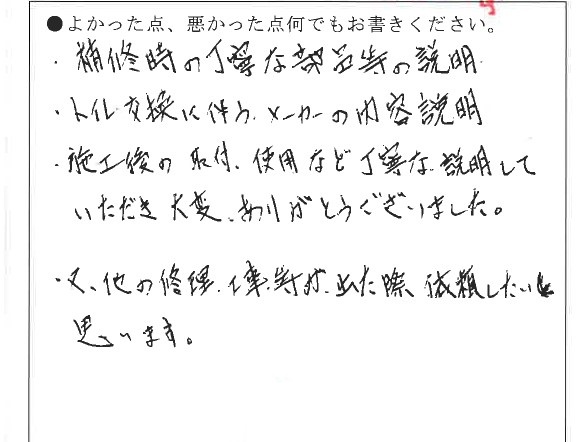 ●よかった点、悪かった点何でもお書きください。
・補修時の丁寧な部品等の説明
・トイレ交換に伴う、メーカーの内容説明
・施工後の取付、使用など丁寧な説明して
いただき大変、ありがとうございました。
・又、他の修理、工事等が出た際、依頼したいと
思います。